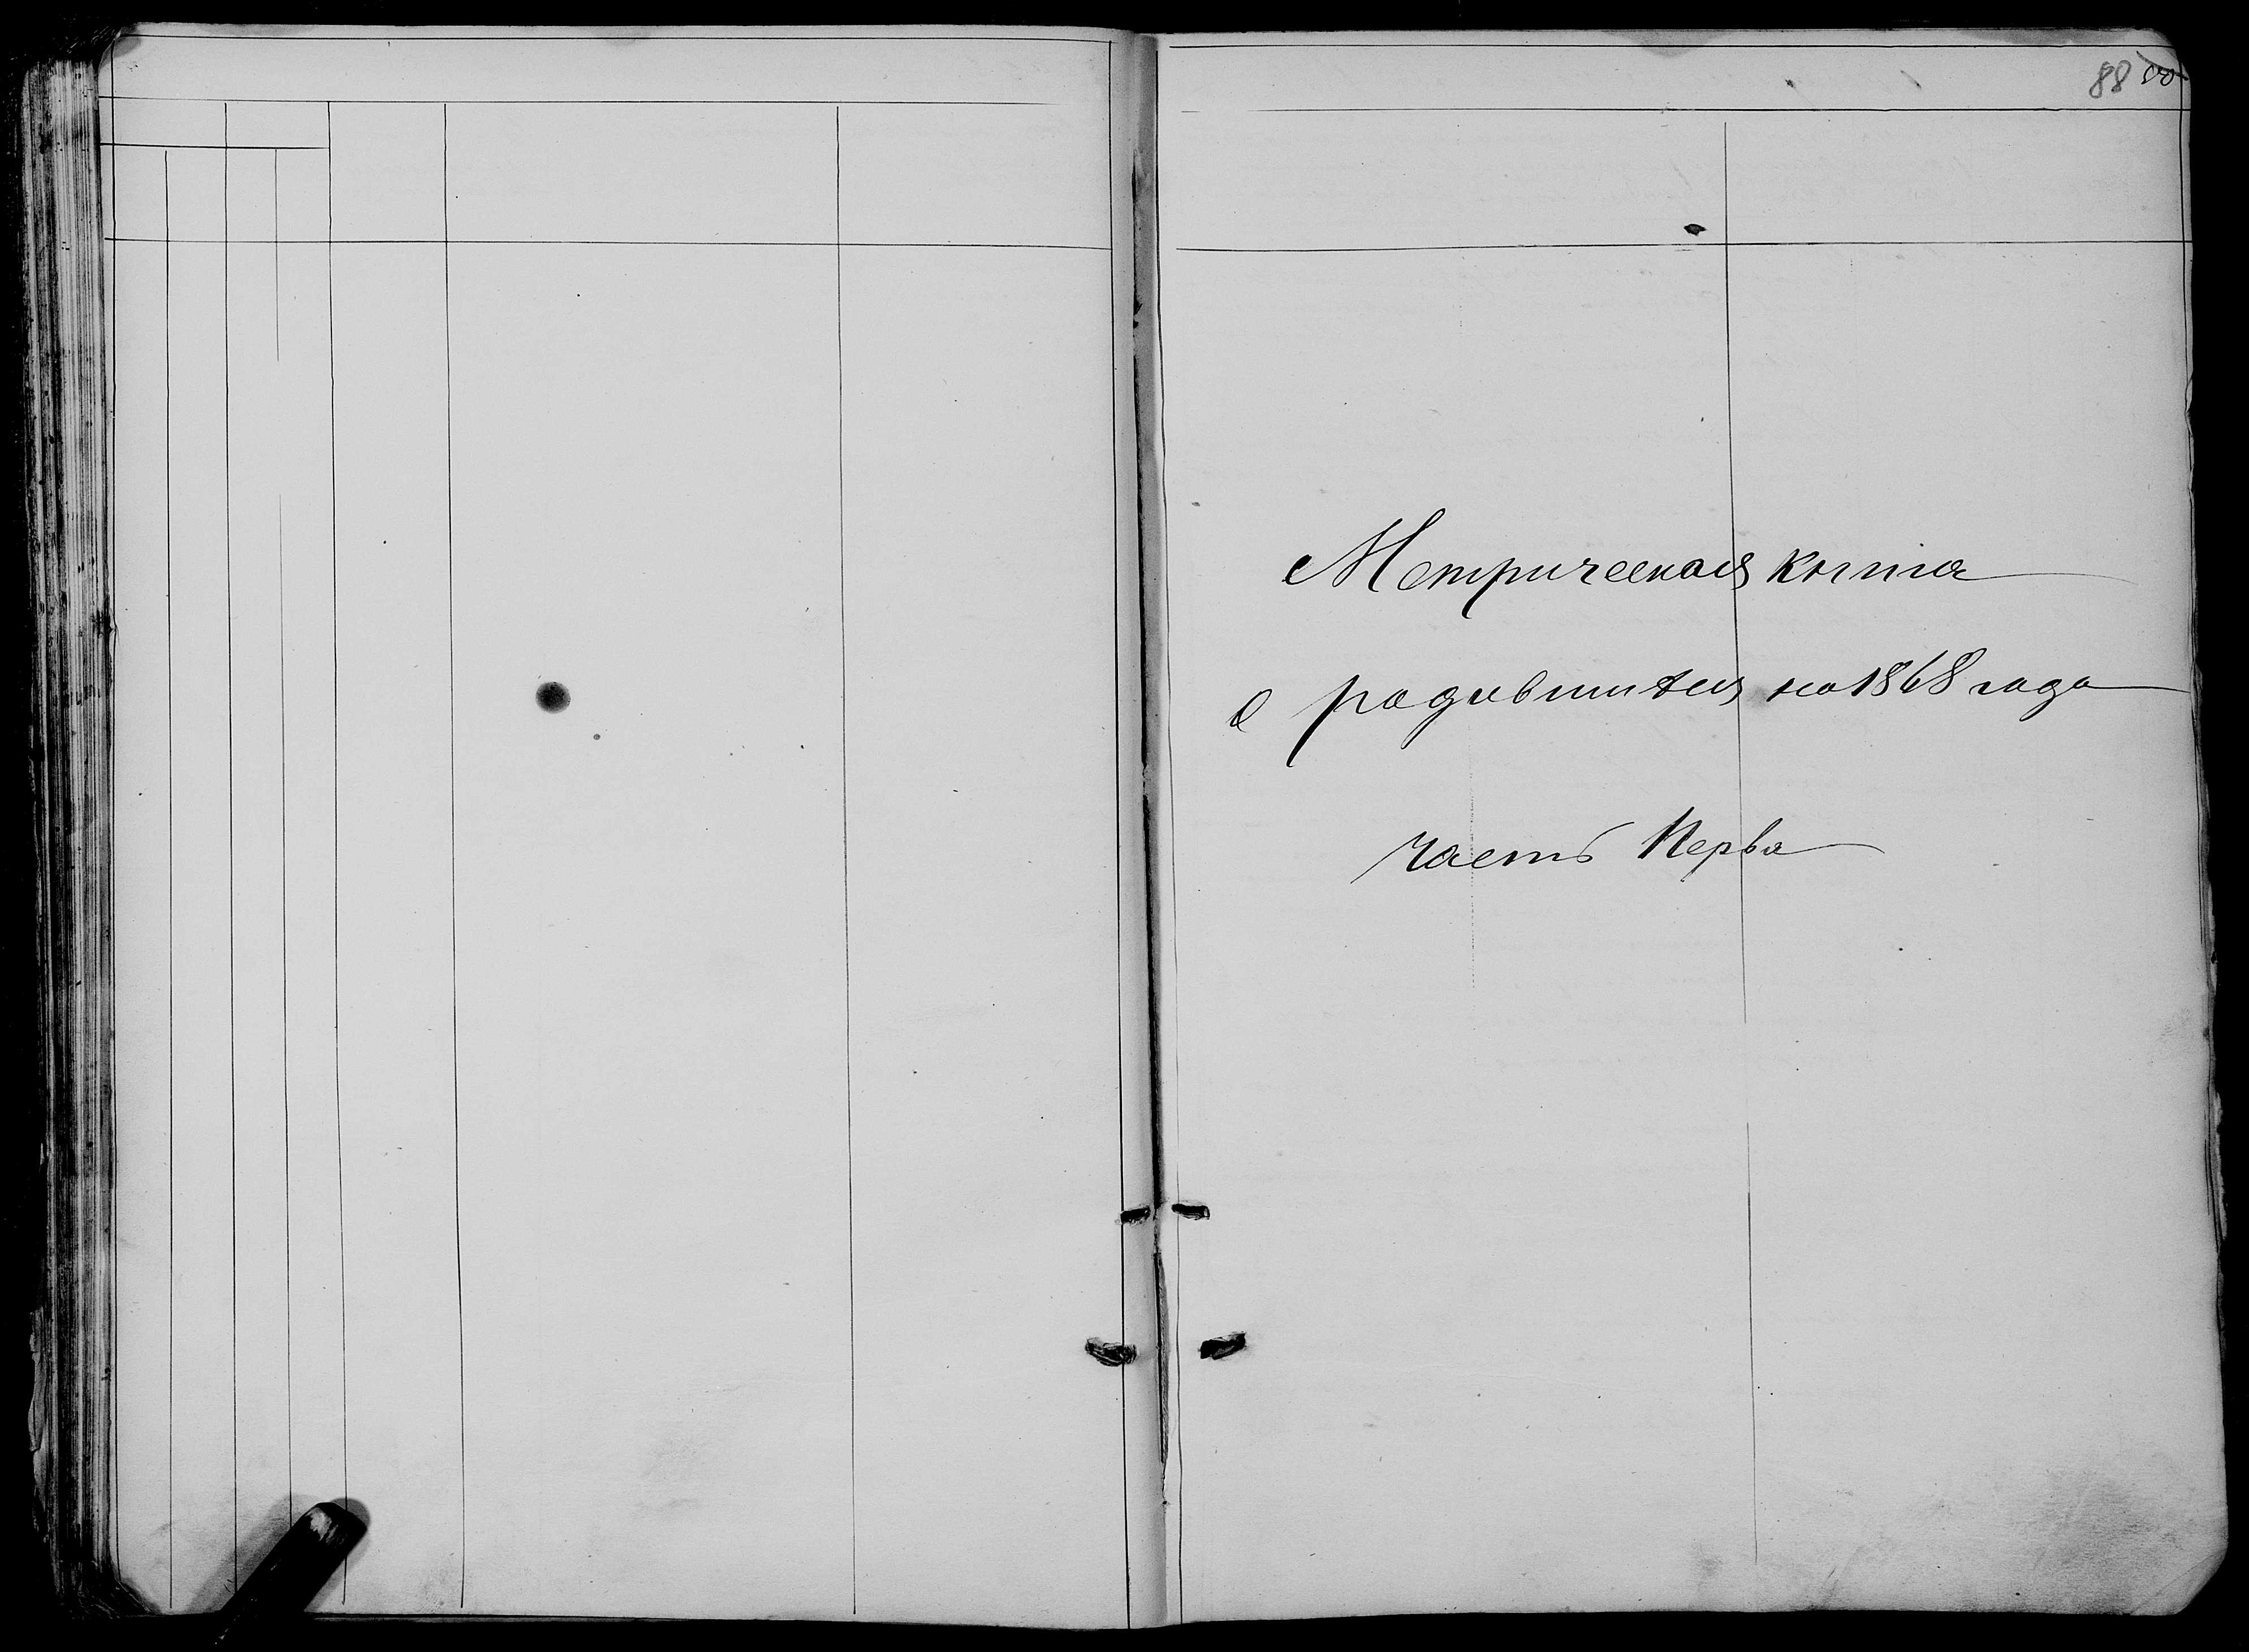 88
Метрическая книга
о родившихся на 1868 года
часть Перва